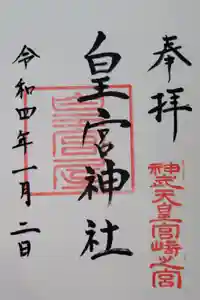 奉拝
神武天皇宮崎之宮
皇宮神社
皇宮
令和四年一月二日